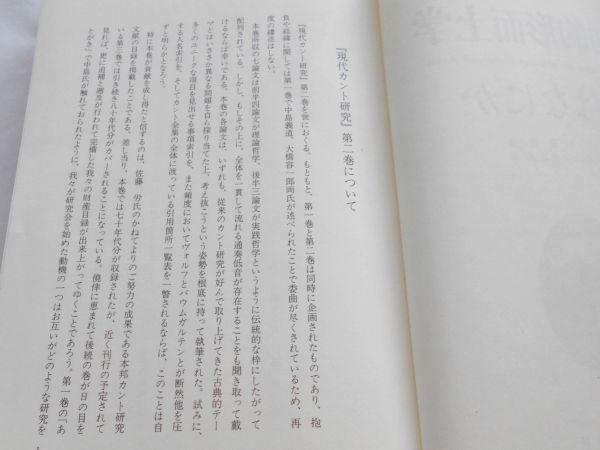 『現代カント研究』第二巻について
『現代カント研究』第二巻を世におくる。もともと、第一巻と第二巻は同時に企画されたものであり、抱
負や経緯に関しては第一巻で中島義道、大橋容一郎両氏が述べられたことで委曲が尽くされているため、再
度の縷述はしない。
本巻所収の七論文は前半四論文が理論哲学、後半三論文が実践哲学というように伝統的な枠にしたがって
配列されている。しかし、もしその上に、全体を一貫して流れる通奏低音が存在することをも聞き取って戴
けるならば幸いである。本巻の各論文は、いずれも、従来のカント研究が好んで取り上げてきた古典的テー
マとはいささか異なる問題を自ら探り当てた上、考え抜こうという姿勢を根底に持って執筆された。試みに、
多くのユニークな項目を見出せる事項索引を、また頻度においてヴォルフとバウムガルテンとが断然他を圧
する人名索引を、そしてカント全集の全体に渡っている引用箇所一覧表を一瞥されるならば、このことは自
ずと明らかとなろう。
特に本巻が貢献を成し得たと信ずるのは、佐藤 労氏のかねてよりのご努力の成果である本邦カント研究
文献の目録を掲載したことである。差し当り、本巻では七十年代分が収録されたが、近く刊行の予定されて
いる第三巻では引き続き八十年代分がカバーされることになっている。僥倖に恵まれて後続の巻が日の目を
見れば、更に追補と遡及が行われて完備した我々の財産目録が出来上がってゆくことであろう。第一巻の「あ
とがき」で中島氏が触れておられたように、我々が研究会を始めた動機の一つはお互いがどのような研究を